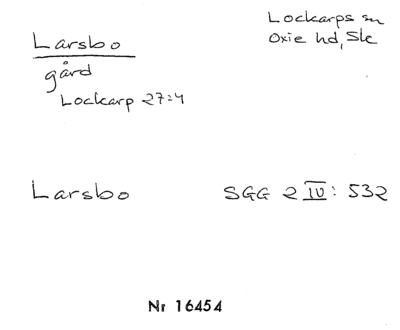 Larsbo
gård
Lockarp 27:4
Lockarps sn
Oxie hd, Sk
Larsbo
SGG 2 IV: 532
Nr 16454